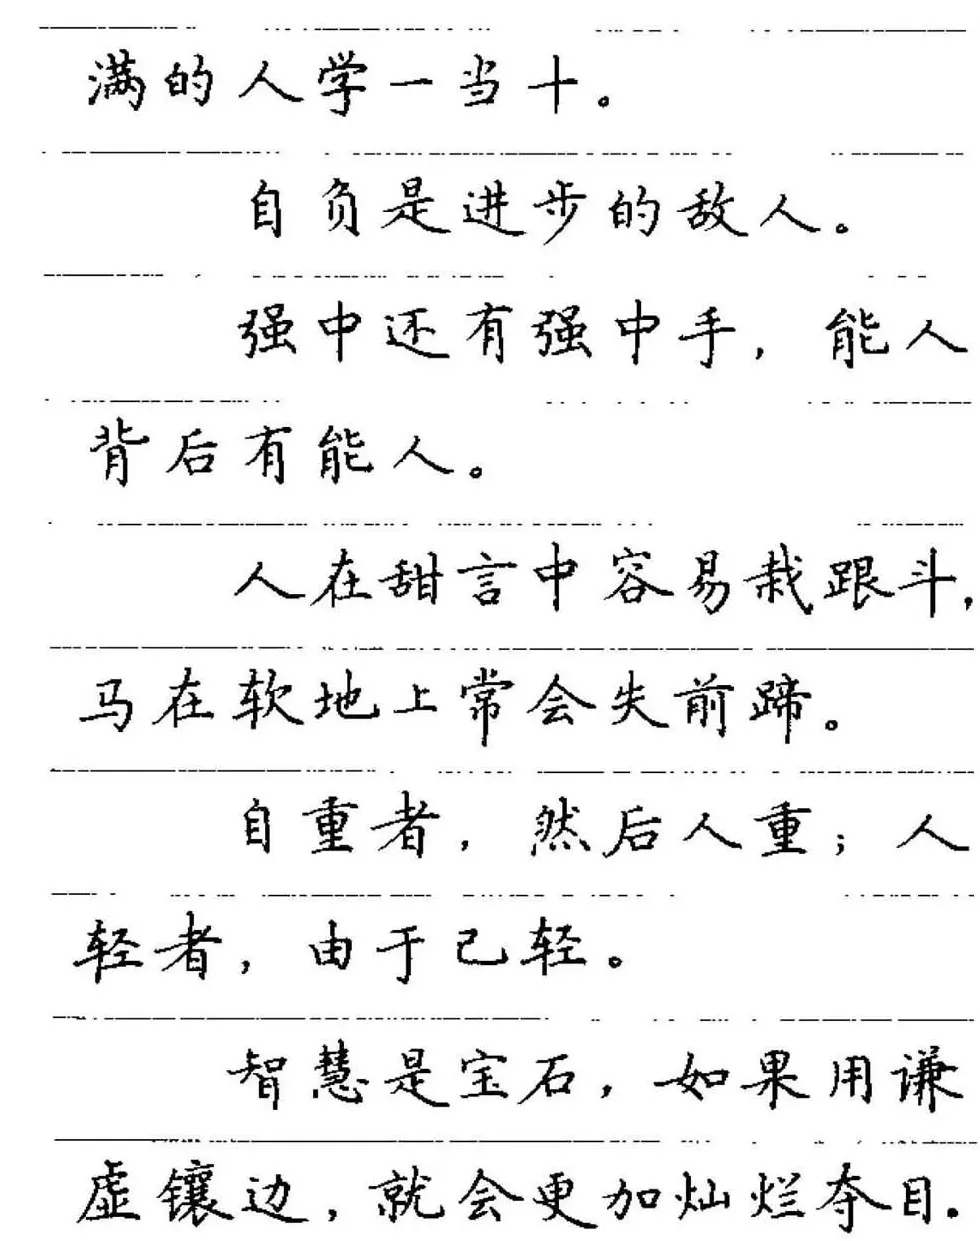 满的人学一当十。
自负是进步的敌人。
强中还有强中手，能人
背后有能人。
人在甜言中容易栽跟斗，
马在软地上常会失前蹄。
自重者，然后人重；人
轻者，由于己轻。
智慧是宝石，如果用谦
虚镶边，就会更加灿烂夺目.